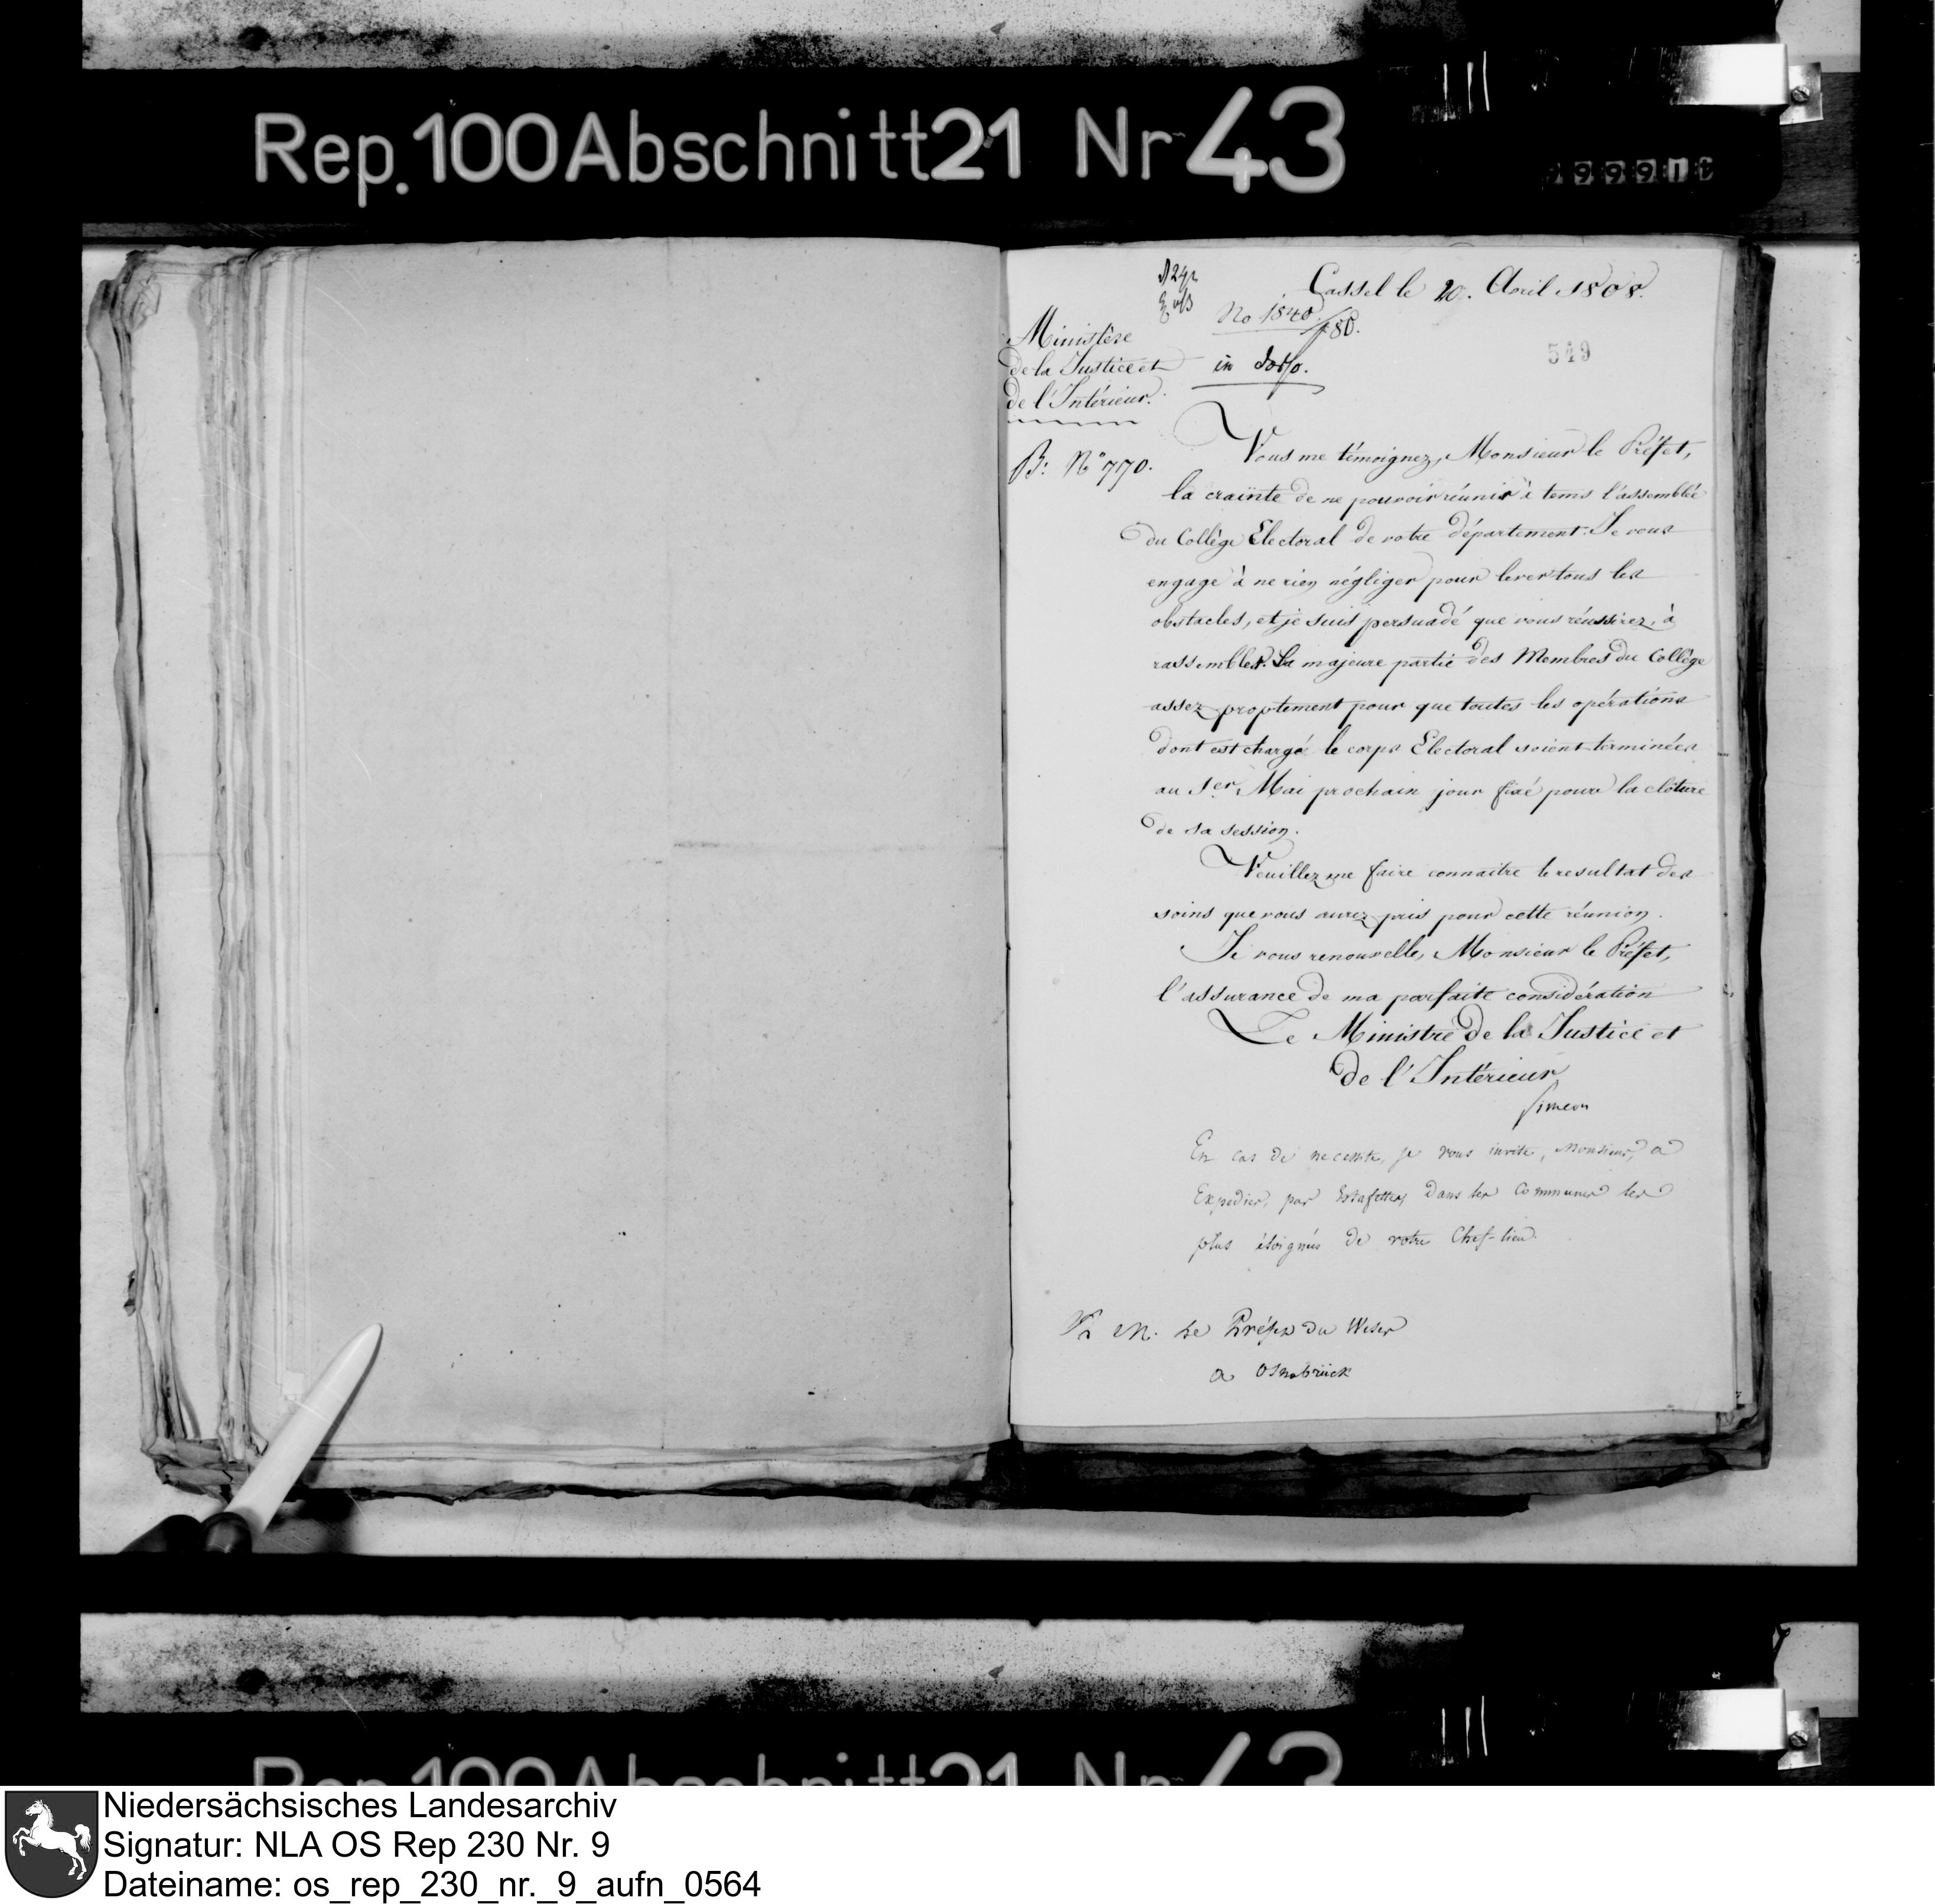 Rep. 100 Abschnitt 21 Nr 43
Cassel le 20. Avril 1808.
No 1840
180.
in dorso.
549
Ministère
de la Justice et
de l'Intérieur.
B: N° 770.
Vous me témoignez, Monsieur le Préfet,
la crainte de ne pouvoir réunir à tems l'assemblée
du Collège Electoral de votre département. Je vous
engage à ne rien négliger pour lever tous les
obstacles, et je suis persuadé que vous réussirez, à
rassembler la majeure partie des Membres du Collège
assez proptement pour que toutes les opérations
dont est chargé le corps Electoral soient terminées
au 1er Mai prochain jour fixé pour la clôture
de sa session.
Veuillez me faire connaitre le resultat des
soins que vous aurez pris pour cette réunion.
Je vous renouvelle, Monsieur le Préfet,
l'assurance de ma parfaite considération
Le Ministre de la Justice et
de l'Intérieur
Simeon
En cas de necessité, je vous invite, Monsieur, a
Expedier, par Estafettes, dans les Communes les
plus éloignées de votre Chef-lieu.
M. Le Préfet du Weser
a Osnabrück
Rep. 100 Abschnitt 21 Nr 43
Niedersächsisches Landesarchiv
Signatur: NLA OS Rep 230 Nr. 9
Dateiname: os_rep_230_nr._9_aufn_0564